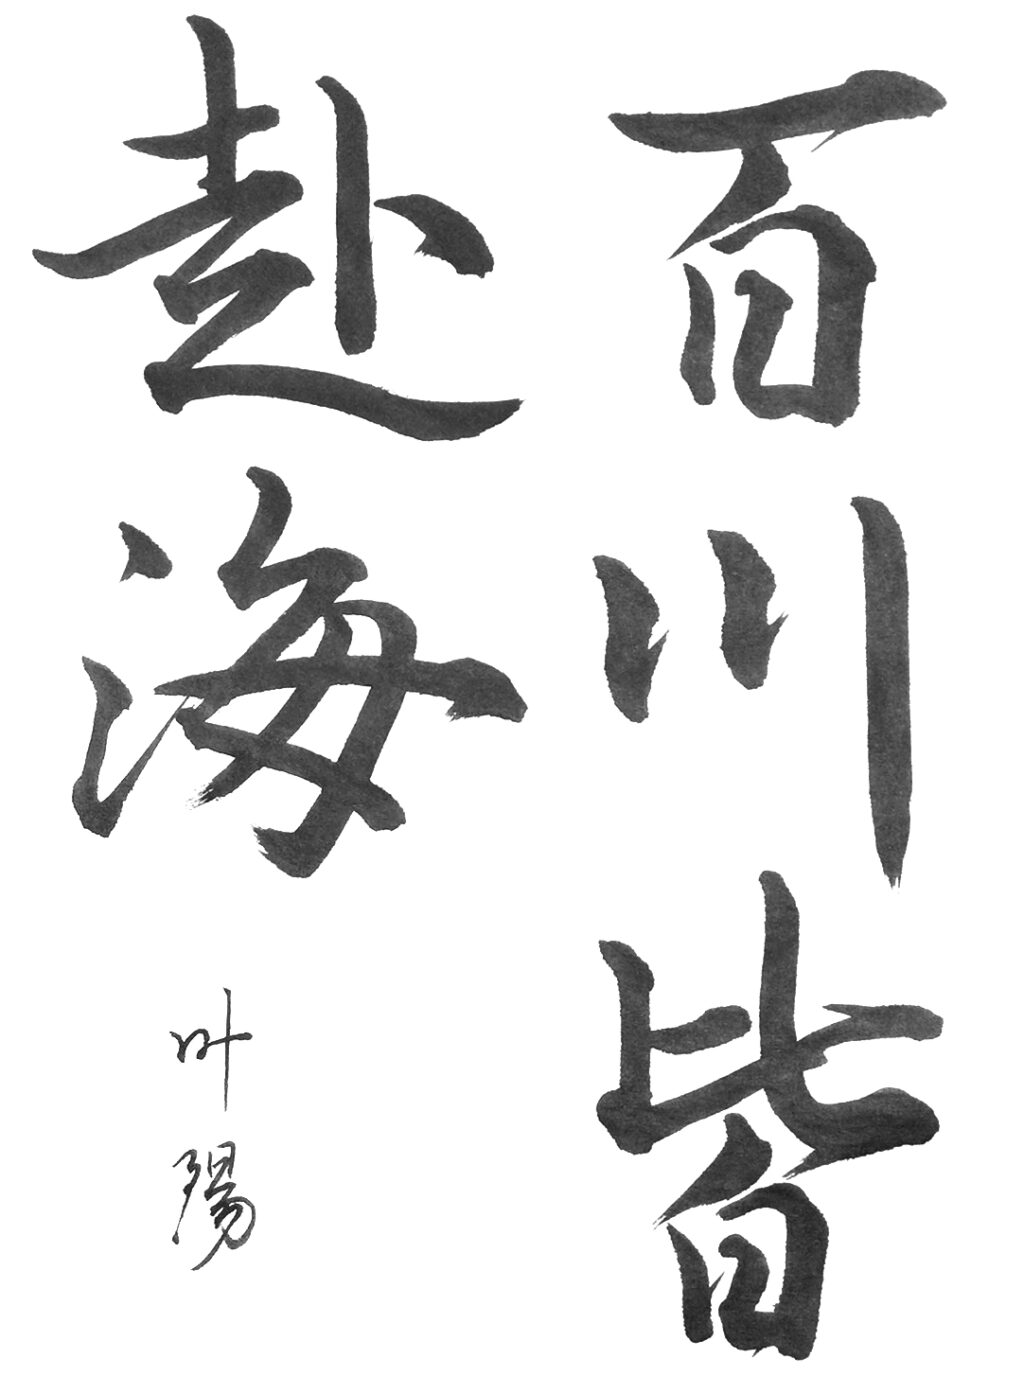 百川皆
赴海
叶陽